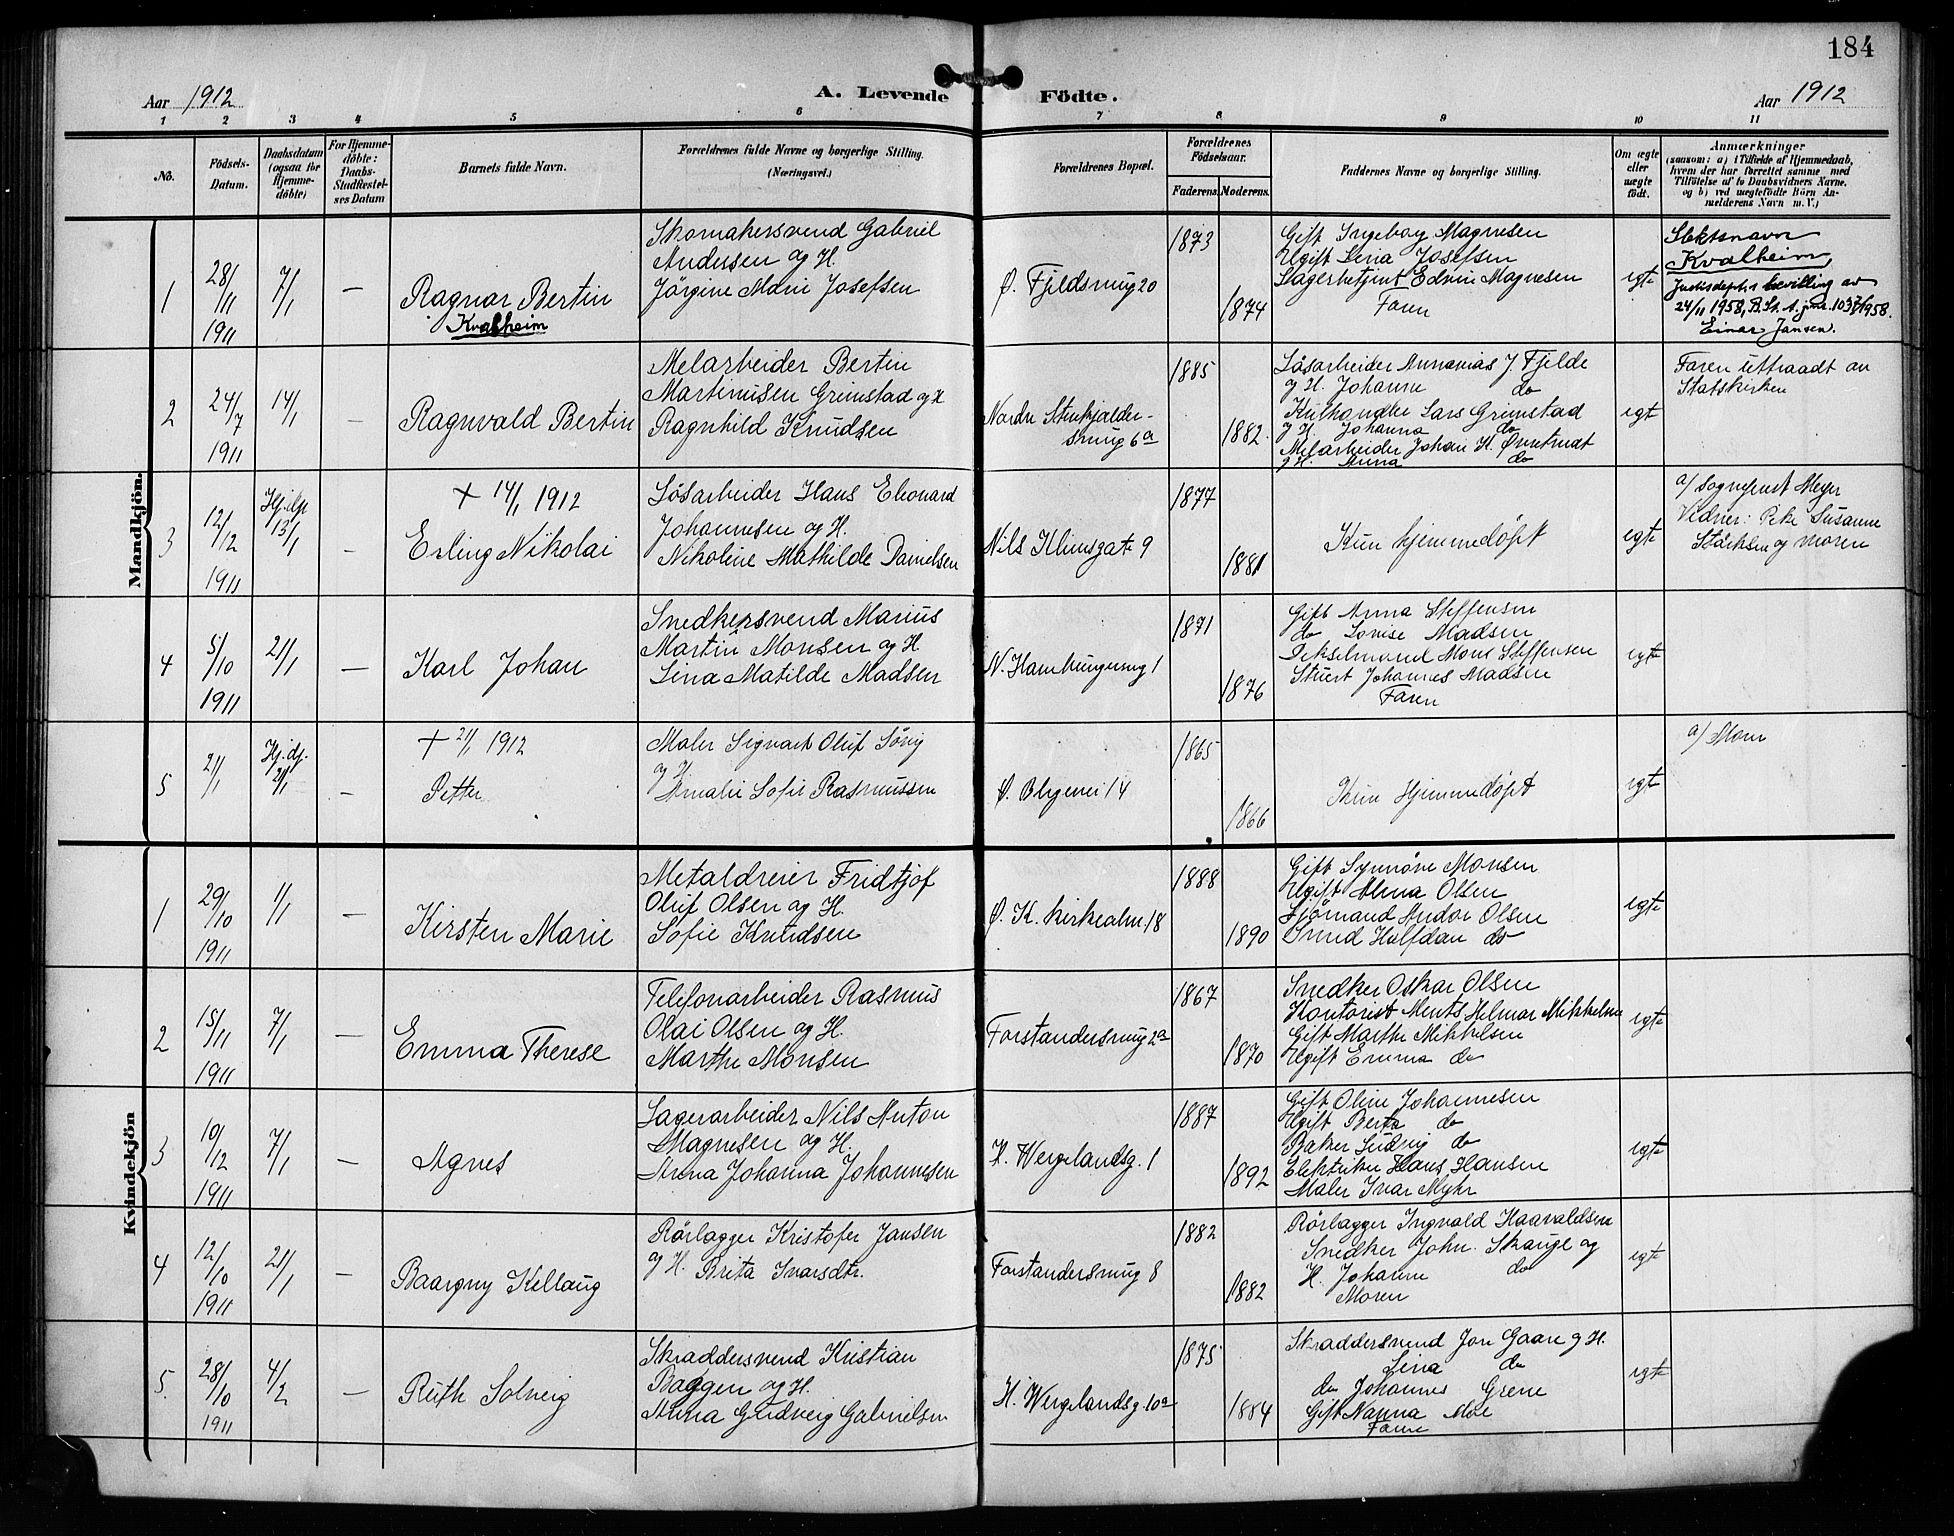 184
Aar 1912
A. Levende Födte.
Aar 1912
1 2 3 4 5 6 7 8 9 10 11
No.
Födsels-
Datum.
Daabsdatum
(ogsaa for
Hjemme-
döbte)
For Hjemme-
döbte:
Daabs-
Stadfæstel-
ses Datum
Barnets fulde Navn.
Forældrenes fulde Navne og borgerlige Stilling.
(Næringsvei.)
Forældrenes Bopæl.
Forældrenes
Födselsaar.
Faderens. Moderens.
Faddernes Navne og borgerlige Stilling.
Om ægte
eller
uægte
födt.
Anmærkninger
(saasom: a) i Tilfælde af Hjemmedaab,
hvem der har forrettet samme, med
Tilföielse af to Daabsvidners Navne,
og b) ved uægtefödte Börn An-
melderens Navn m. V.)
Mandkjön.
1
28/11
1911
7/1
—
Ragnar Bertin
Kvalheim
Skomakersvend Gabriel
Andersen og H.
Jörgine Marie Josefsen
Ø. Fjeldsmug 20
1873
1874
Gift Ingeborg Magnesen
Ugift Lina Josefsen
Lagerbetjent Edvin Magnesen
Faren
egte
Slektsnavn
Kvalheim,
Justisdepts bevilling av
24/11 1958, B.St.A. jnr. 1037/1958.
Einar Jansen.
2
24/7
1911
14/1
—
Ragnvald Bertin
Melarbeider Bertin
Martinusen Grimstad og H
Ragnhild Knudsen
Nordre Stenkjelder-
smug 6a
1885
1882
Lösarbeider Annanias J. Fjelde
og H. Johanne do
Kulhandler Lars Grimstad
og H. Johanna do
Melarbeider Johan H. Øvretredt
og H. Anna do
egte
Faren uttraadt av
Statskirken
3
12/12
1911
Hj.dp
13/1
—
+ 14/1 1912
Erling Nikolai
Lösarbeider Hans Eleonard
Johannesen og H.
Nikoline Mathilde Danielsen
Nils Klimsgate 9
1877
1881
Kun hjemmedöpt
egte
a/ Sogneprest Meyer
Vidner: Pike Susanne
og Moren
4
5/10
1911
21/1
—
Karl Johan
Snedkersvend Marius
Martin Monsen og H
Lina Matilde Madsen
N. Hamburgersmug 1
1871
1876
Gift Anna Steffensen
do Lovise Madsen
Mons Steffensen
Stuert Johannes Madsen
Faren
egte
5
2/1
Hj.dp.
2/1
—
+ 2/1 1912
Petter
Maler Sigvart Oluf
og H
Amalie Sofie Rasmussen
Ø. Blegevei 14
1865
1866
Kun Hjemmedöpt
egte
a/ Moren
Kvindekjön
1
29/10
1911
1/1
—
Kirsten Marie
Metaldreier Fridtjof
Oluf Olsen og H.
Sofie Knudsen
Ø. K. Kirkealm. 18
1888
1890
Gift Synnöve Monsen
Ugift Olsen
Sjömand Andor Olsen
Smed Halfdan do
egte
2
15/11
1911
7/1
—
Emma Therese
Telefonarbeider Rasmus
Olai Olsen og H.
Marthe Monsen
Forstandersmug 2a
1867
1870
Snedker Oskar Olsen
Kontorist Ments Helmar Mikkelsen
Gift Marthe Mikkelsen
Ugift Emma do
egte
3
10/12
1911
7/1
—
Agnes
Lagerarbeider Nils Anton
Magnesen og H.
Anna Johanna Johannesen
H. Wergelandsg. 1
1887
1892
Gift Oline Johannesen
Ugift Berta do
Baker Ludvig do
Elektriker Hans Hansen
Maler Ivar Myhr
egte
4
12/10
1911
21/1
—
Baargny Kellaug
Rörlægger Kristofer Jansen
og H. Brita Ivarsdtr.
Forstandersmug 8
1882
1882
Rörlægger Ingvald Haavaldsen
Snedker John. Skauge og
H. Johanne do
Moren
egte
5.
28/10
1911
4/2
—
Ruth Solveig
Skraddersvend Kristian
Baggen og H.
Anna Gudveig Gabrielsen
H. Wergelandsg. 10a
1875
1884
Skraddersvend Jon Gaare og H.
Lina do
do Johannes Grene
Gift Nanna Moe
Faren
egte